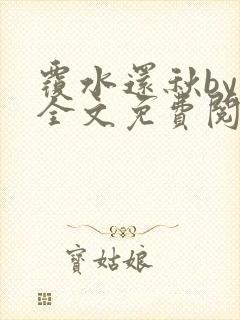 覆水還秋by
全文免費閱
寳姑娘